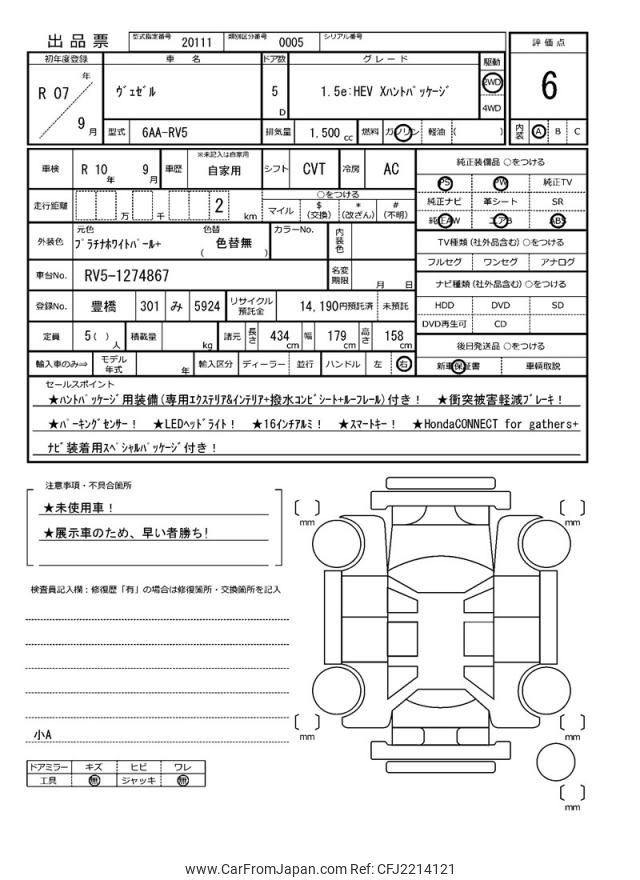 出品票 型式指定番号 20111 類別区分番号 0005 シリアル番号
評価点
6
内装 A B C
初年度登録 車名 ドア数 グレード 駆動
R 07 年 9 月 ヴェゼル 5 D 1.5e:HEV Xハントパッケージ 2WD
4WD
型式 6AA-RV5 排気量 1.500 cc 燃料 ガソリン 軽油 ( )
車検 R 10 年 9 月 車歴 ※未記入は自家用 自家用 シフト CVT 冷房 AC
走行距離 万 千 2 km ○をつける
マイル $ (交換) * (改ざん) # (不明)
外装色 元色 プラチナホワイトパール+ 色替 ( 色替無 ) カラーNo. 内装色
車台No. RV5-1274867 名変期限 月 日
登録No. 豊橋 301 み 5924 リサイクル預託金 14,190円預託済 未預託
定員 5( ) 人 積載量 kg 諸元 長さ 434 cm 幅 179 cm 高さ 158 cm
輸入車のみ⇒ モデル年式 年 輸入区分 ディーラー 並行 ハンドル 左 右
純正装備品 ○をつける
PS PW 純正TV
純正ナビ 革シート SR
純正AW エアB ABS
TV種類(社外品含む)○をつける
フルセグ ワンセグ アナログ
ナビ種類(社外品含む)○をつける
HDD DVD SD
DVD再生可 CD
後日発送品 ○をつける
新車保証書 車輌取説
セールスポイント
★ハントパッケージ用装備(専用エクステリア&インテリア+撥水コンビシート+ルーフレール)付き! ★衝突被害軽減ブレーキ!
★パーキングセンサー! ★LEDヘッドライト! ★16インチアルミ! ★スマートキー! ★HondaCONNECT for gathers+
ナビ装着用スペシャルパッケージ付き!
注意事項・不具合箇所
★未使用車!
★展示車のため、早い者勝ち!
検査員記入欄:修復歴「有」の場合は修復箇所・交換箇所を記入
小A
ドアミラー キズ ヒビ ワレ
工具 無 ジャッキ 無
mm
mm
mm
mm
mm
www.CarFromJapan.com Ref: CFJ2214121